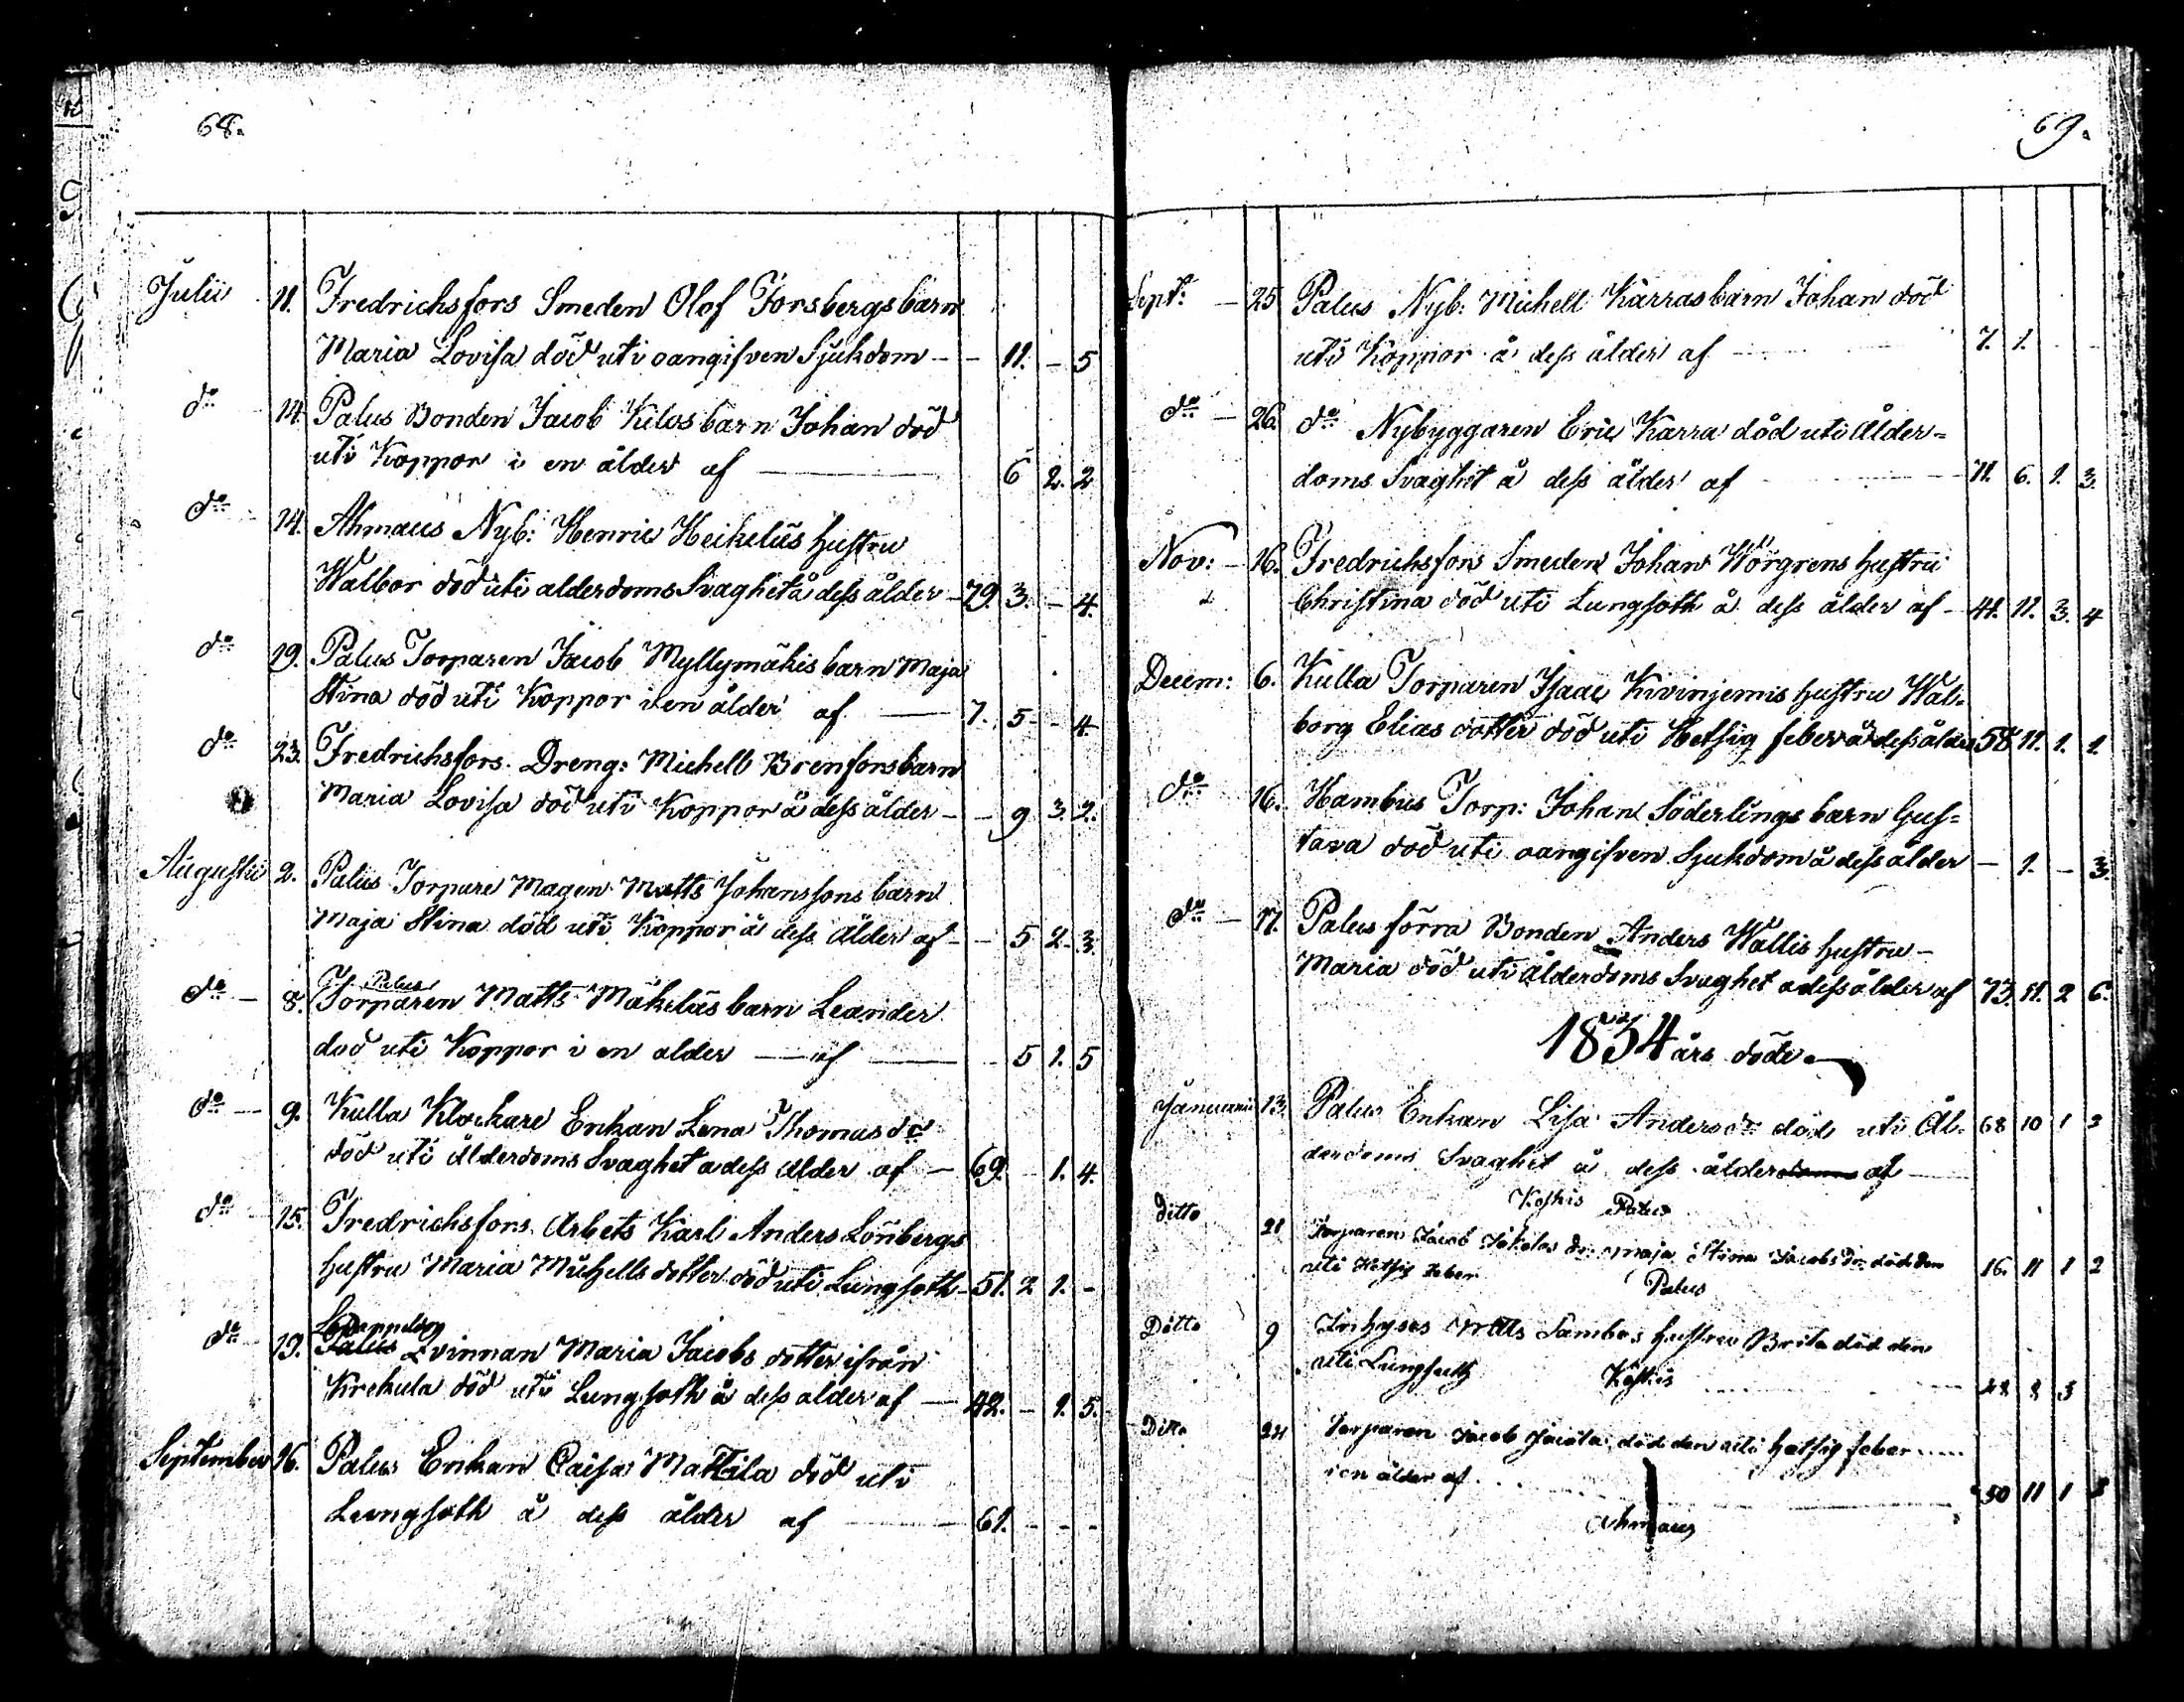 68.
Julii 11. Fredrichsfors Smeden Olof Forsbergs barn
Maria Lovisa död uti oangifven Sjukdom - - 11. - 5
do 14. Palus Bonden Jacob Kilos barn Johan död
uti Koppor i en ålder af — 6 2. 2
do 14. Ahmaus Nyb: Henric Heikelüs hustru
Walbor död uti alderdoms Svaghet å dess ålder - 79. 3. - 4.
do 19. Palus Torparen Jacob Myllymäkis barn Maja
Stina död uti Koppor i en ålder af — 7. 5 - 4
do 23. Fredrichsfors. Dreng: Michell Brenfors barn
Maria Lovisa död uti Koppor å dess ålder - - 9 3. 2.
Augustii 2. Palus Torpare Magen Matts Johanssons barn
Maja Stina död uti Koppor å dess ålder af - - 5 2. 3.
Palus
do - 8. Torparen Matts Mäkeläs barn Leander
dod uti Koppor i en alder — af — 5 1. 5
do - 9. Kulla Klockare Enkan Lena Thomas dr
död uti Ålderdoms Svaghet a dess alder af — 69. - 1. 4.
do 15. Fredrichsfors Arbets Karl Anders Lönbergs
hustru Maria Michells dotter död uti Lungsoth - 51. 2 1. -
do 19. Palus Qvinnan Maria Jacobs dotter ifrån
Krekula död uti Lungsoth å dess alder af — 42. - 1. 5.
September 16. Palus Enkan Caisa Mattila död uti
Lungsoth å dess ålder af — 61. - - -
69.
Sept: - 25 Palus Nyb: Michell Kärras barn Johan död
uti Koppor å dess ålder af 7. 1. - -
do - 26. do Nybyggaren Eric Karra död uti Ålder=
doms Svaghet å dess ålder af — 71. 6. 1. 3.
Nov: - 16. Fredrichsfors Smeden Johan Wörgrens hustru
Christina död uti Lungsoth å dess ålder af - 41. 11. 3. 4
Decem: 6. Kulla Torparen Isaac Kivinjemis hustru Wal=
borg Elias dotter död uti Hetsig feber å dess ålder 58 11. 1. 1.
do 16. Hambus Torp: Johan Söderlings barn Gus=
tava död uti oangifven Sjukdom å dess ålder — 1. - 3.
do - 17. Palus förra Bonden Anders Wallis hustru -
Maria död uti Ålderdoms Svaghet a dess ålder af 73. 11. 2 6.
1834 års döde
Januarii 13. Palus Enkan Lisa Anders dr död uti Ål= 68 10 1 3
derdoms Svaghet å dess ålder af —
Koskis Palus
ditto 21 Torparen Jacob Jakolas dr maja Stina Jacobs dr död den
uti Hetsig feber 16. 11 1 2
Palus
Ditto 9 Inhyses Matts Sambos hustru Brita död den
uti Lungsuth 48 8 3
Koskis
Ditto 24 Torparen Jacob Jacola död den uti hetsig feber
i en ålder af 50 11 1 3
Ahmaus